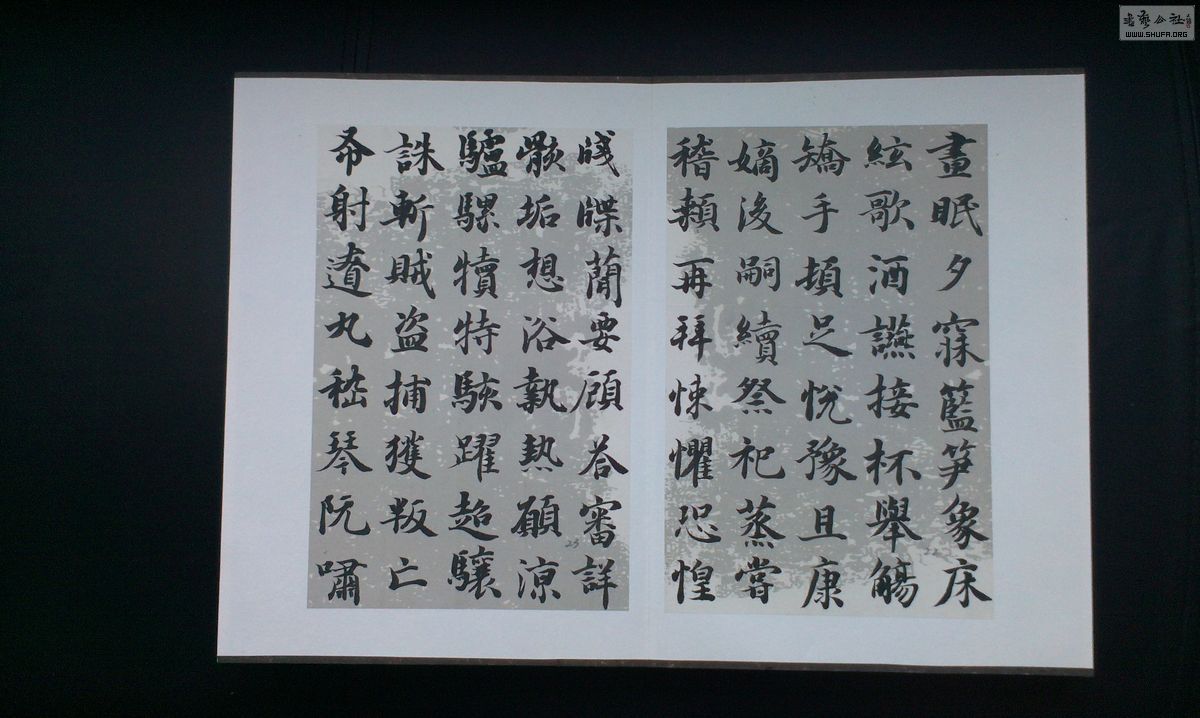 晝眠夕寐籃笋象床
絃歌酒讌接杯舉觴
矯手頓足悅豫且康
嫡後嗣續祭祀蒸嘗
稽顙再拜悚懼恐惶
牋牒簡要顧答審詳
骸垢想浴執熱願涼
驢騾犢特駭躍超驤
誅斬賊盜捕獲叛亡
布射遼丸嵇琴阮嘯
書藝公社
WWW.SHUFA.ORG